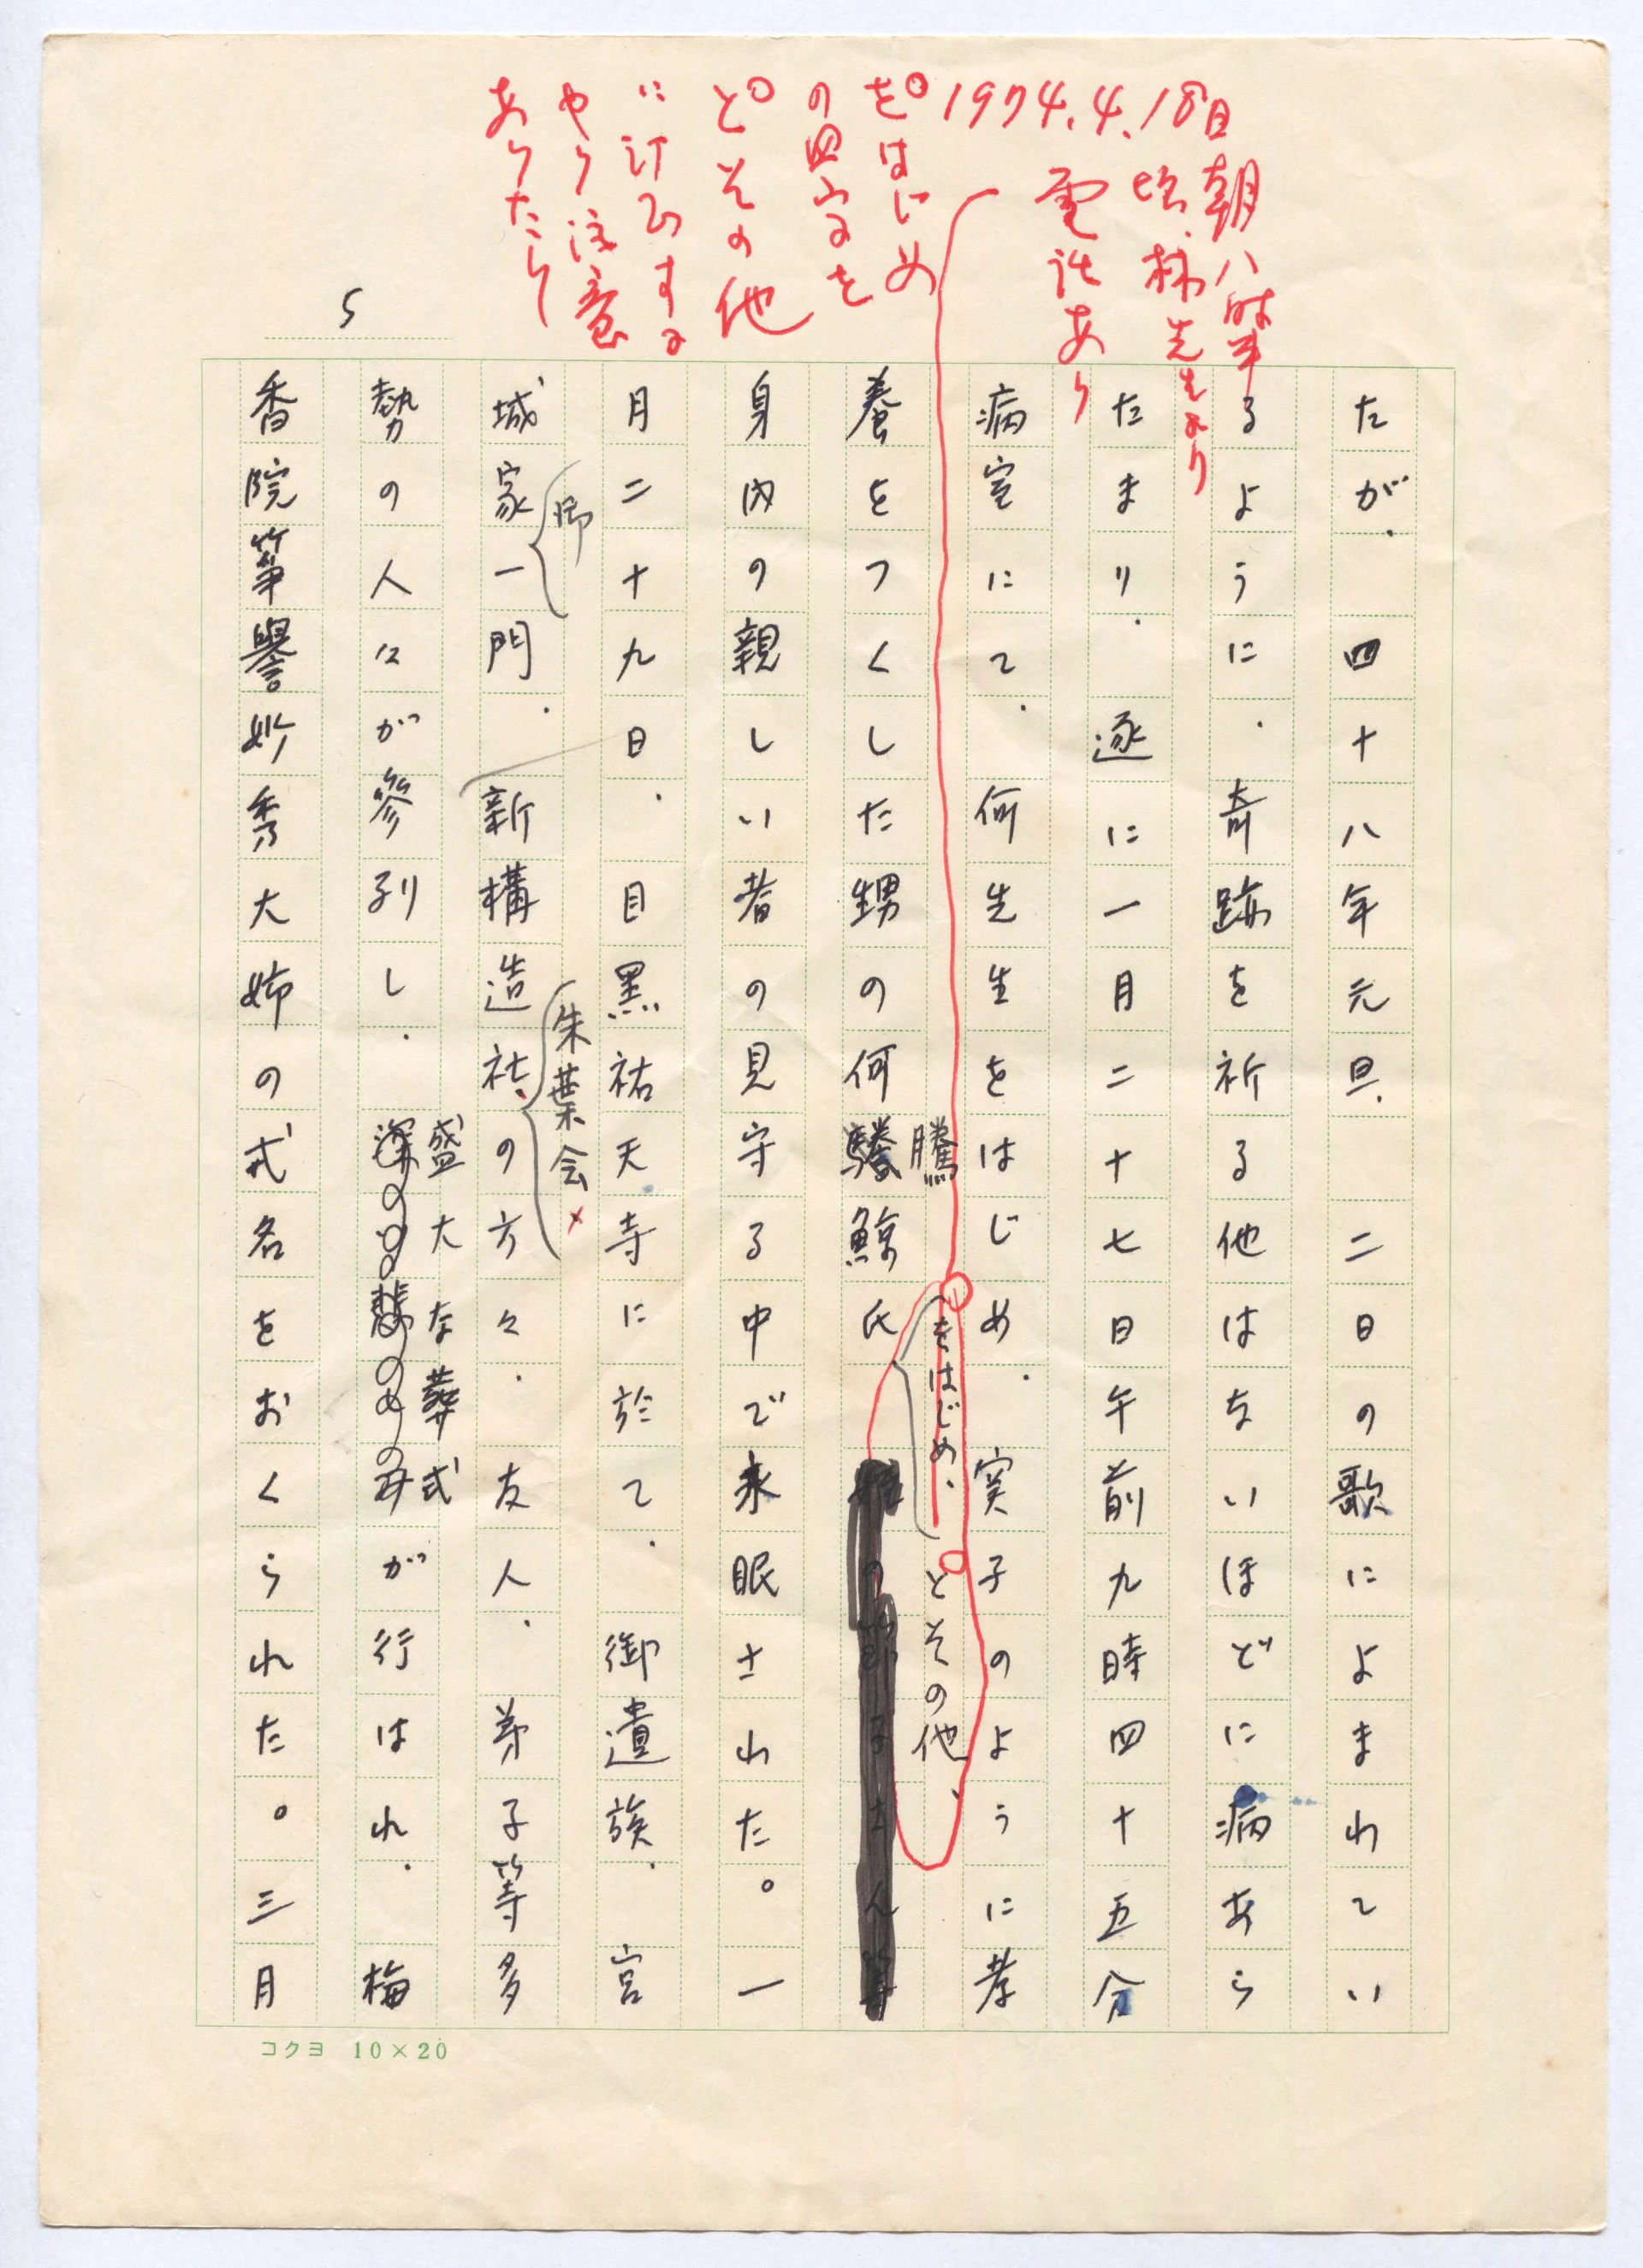 1974.4.18日
朝八時半
頃、林先生より
電話あり
をはじめ
の四字を
とその他
に訂正する
やう注意
ありたり
5
たが、四十八年元旦、二日の歌によまれてい
るように、奇跡を祈る他はないほどに病あら
たまり、逐に一月二十七日午前九時四十五分
病室にて、何先生をはじめ、実子のように孝
養をつくした甥の何騰鯨氏
騰
をはじめ、
とその他、
身内の親しい者の見守る中で永眠された。一
月二十九日、目黒祐天寺に於て、御遺族、宮
御
朱葉会
城家一門、新構造社、の方々、友人、弟子等多
勢の人々が参列し、
盛大な葬式
が行はれ、梅
香院筝譽妙秀大姉の戒名をおくられた。三月
コクヨ 10×20